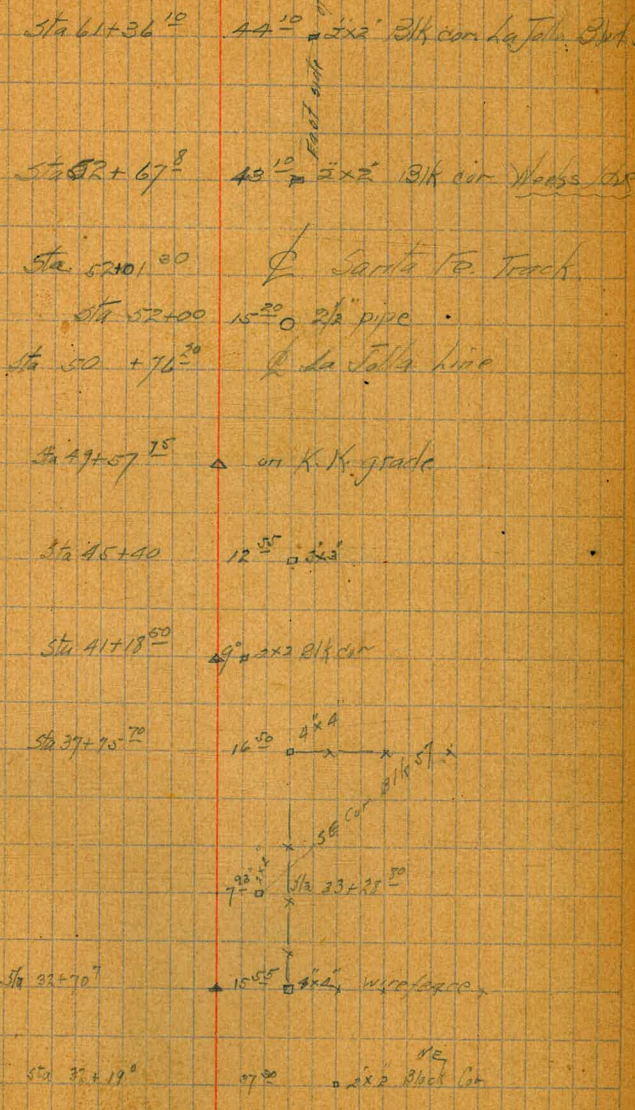 Sta 61+36 10 44 10 2"x2" Blk cor La Jolla
East side
Sta 52+67 8 43 10 2"x2" Blk cor
Sta 52+01 30 ℄ Santa Fe. Track
Sta 52+00 15 20 2½" pipe
Sta 50 +76 50 ℄ La Jolla Line
Sta 49+57 75 on K.K. grade
Sta 45+40 12 55 3"x3"
Sta 41+18 60 9° 2x2 Blk cor
Sta 37+75 70 16 50 4"x4"
SE Cor Blk 57
7 93 2"x2" Sta 33+28 80
Sta 32+70 7 15 55 4"x4" wire fence
NE
Sta + 19° 2"x2" Block Cor